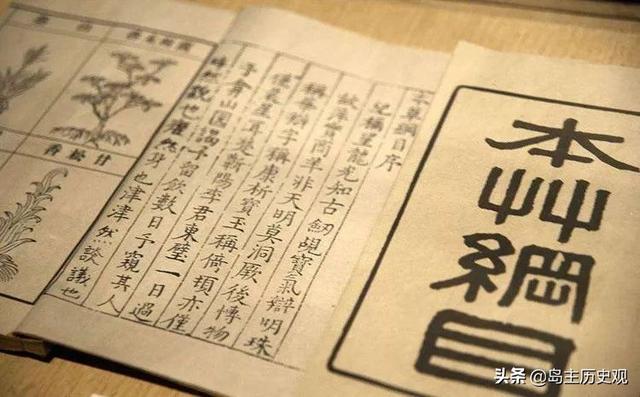 本艸綱目
本草綱目序
紀稱望龍光知古劒覘寶氣辯明珠
故萍實商羊非天明莫洞厥後博物
稱華辯字稱康析寶玉稱倚頓亦僅
僅晨星耳楚蘄陽李君東璧一日過
予弇山園謁予留飲數日予窺其人
睟然貌也癯然身也津津然談議也
甘松香
头条 @岛主历史观